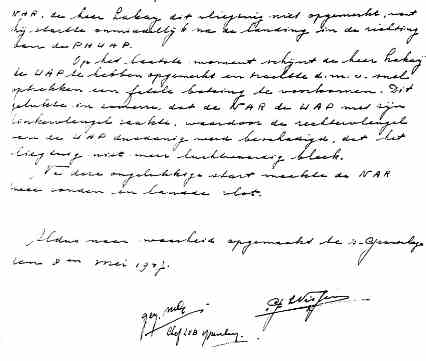 NAR. de heer Lakay dit vliegtuig niet opgemerkt, want
hij startte onmiddellijk na de landing in de richting
van de PHUAP.
Op het laatste moment schijnt de heer Lakay
de UAP te hebben opgemerkt en trachtte d.m.v. snel
optrekken een fatale botsing te voorkomen. Dit
gelukte in zoverre, dat de NAR de UAP met zijn
linkervleugel raakte, waardoor de rechtervleugel
van de UAP dusdanig werd beschadigd, dat het
vliegtuig niet meer luchtwaardig bleek.
Na deze ongelukkige start maakte de NAR
twee ronden en landde vlot.
Aldus naar waarheid opgemaakt te
van 8 en mei 1947.
get.
Chef LVB